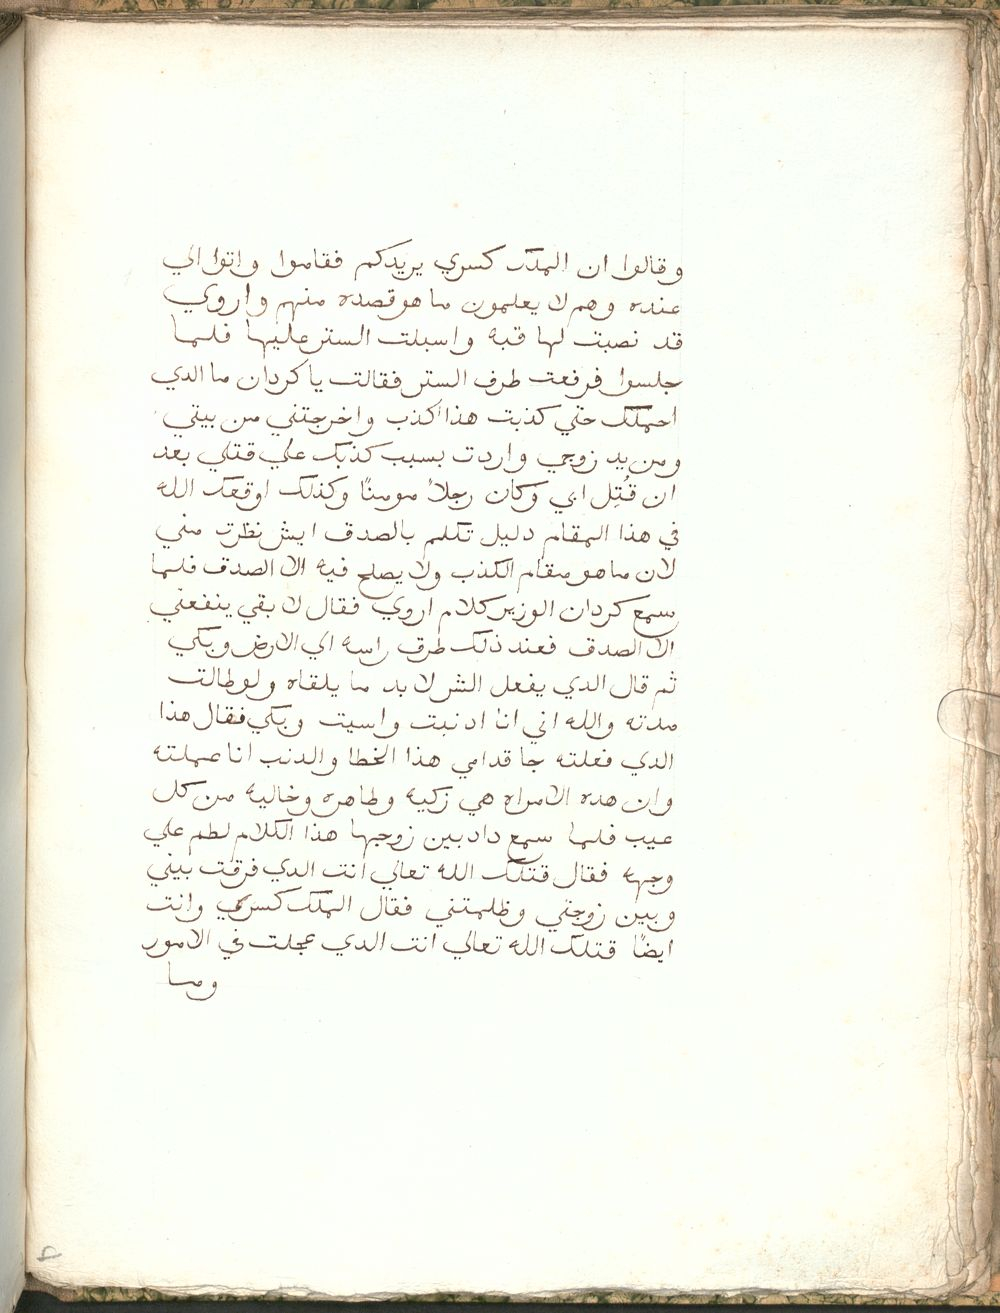 وقالوا ان الملك كسري يريدكم فقاموا واتوا الي
عنده وهم لا يعلمون ما هو قصده منهم واروي
قد نصبت لها قبه واسبلت الستر عليها فلما
جلسوا فرفعت طرف الستر فقالت يا كردان ما الدي
احملك حتي كذبت هذا اكذب واخرجتني من بيتي
ومن يد زوجي واردت بسبب كذبك علي قتلي بعد
ان قُتِل ابي وكان رجلاً مومنًا وكذلك اوقعك الله
في هذا المقام دليل تكلم بالصدق ايش نظرت مني
لان ما هو مقام الكذب ولا يصلح فيه الا الصدق فلما
سمع كردان الوزير كلام اروي فقال لا بقي ينفعني
الا الصدق فعند ذلك طرق راسه اي الارض وبكي
ثم قال الدي يفعل الشر لا بد ما يلقاه ولو طالت
مدته والله اني انا ادنبت واسيت وبكي فقال هذا
الدي فعلته جا قدامي هذا الخطا والدنب انا عملته
وان هده الامراه هي زكيه وطاهره وخاليه من كل
عيب فلما سمع دادبين زوجها هذا الكلام لطم علي
وجهه فقال قتلك الله تعالي انت الدي فرقت بيني
وبين زوجتي وظلمتني فقال الملك كسري وانت
ايضًا قتلك الله تعالي انت الدي عجلت في الامور
وما